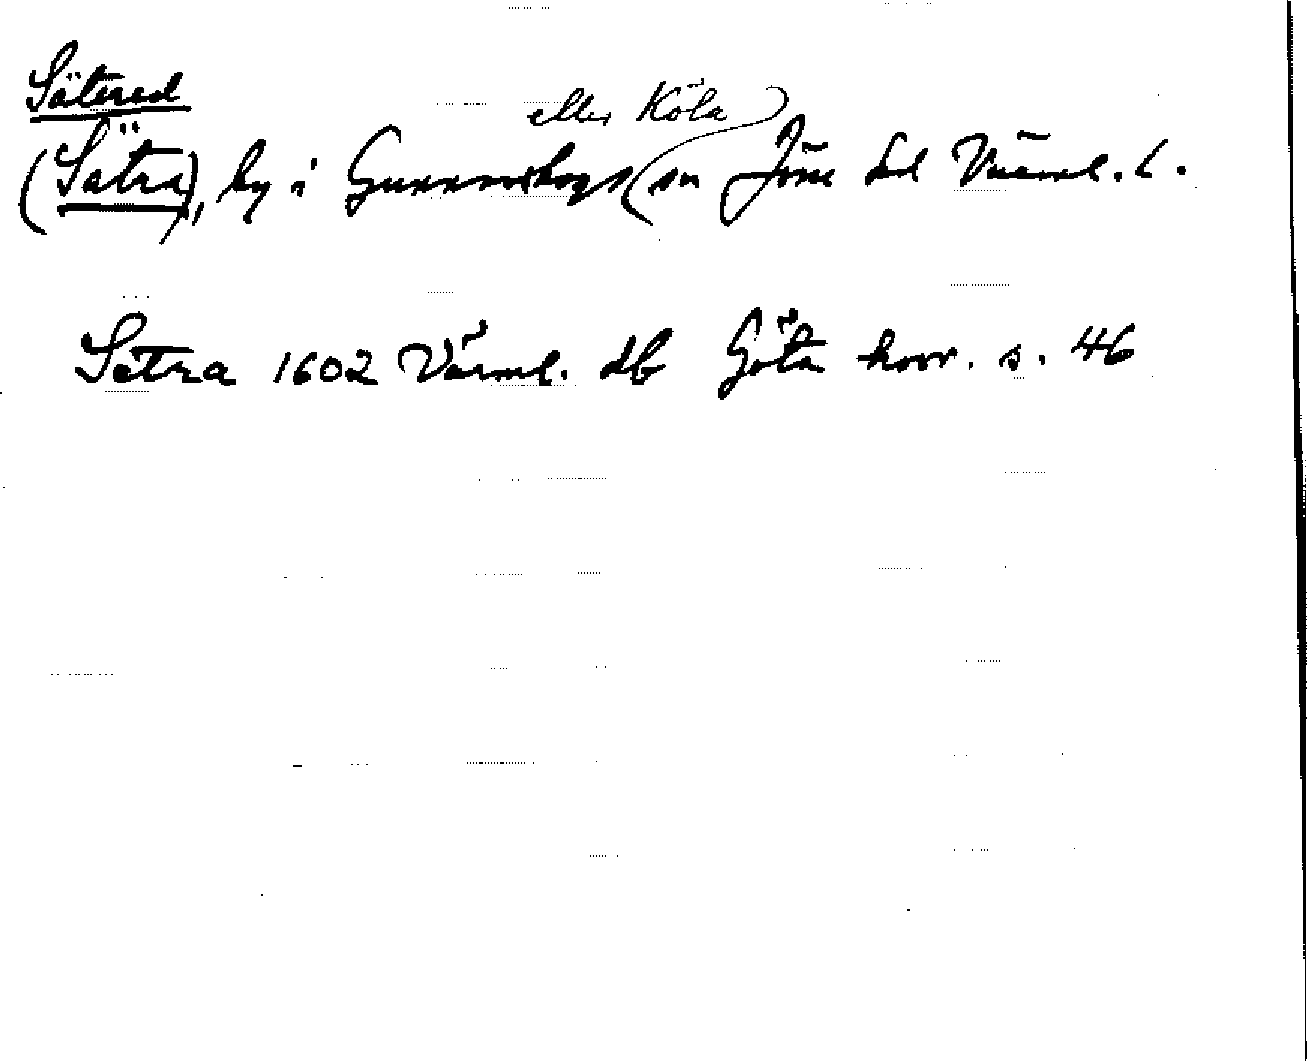 Sätered
eller Köla
(Sätra), by i Gunnarskogs sn Jösse hd Värml. l.
Sätra 1602 Värml. db Göta hovr. s. 46